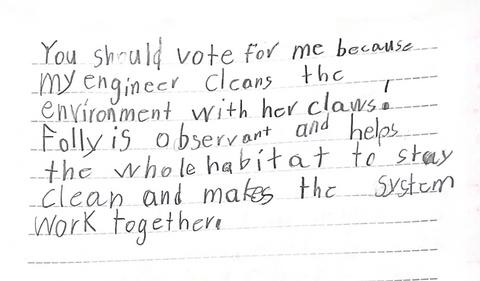 You should vote for me because
my engineer cleans the
environment with her claws!
Folly is observant and helps
the whole habitat to stay
clean and makes the system
work together.